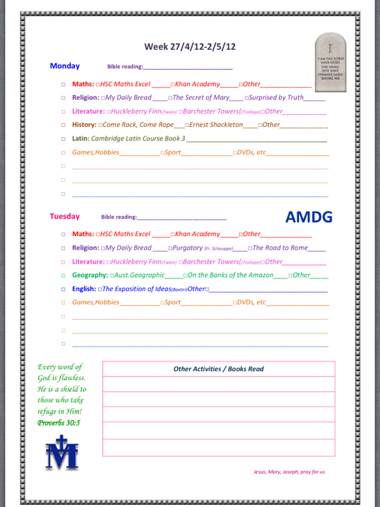 Week 27/4/12-2/5/12
I
I AM THE LORD
THY GOD
Monday Bible reading:
□ Maths: □HSC Maths Excel □Khan Academy □Other
□ Religion: □My Daily Bread □The Secret of Mary □Surprised by Truth
□ Literature: □Huckleberry Finn(Twain) □Barchester Towers[Trollope]□Other
□ History: □Come Rack, Come Rope □Ernest Shackleton □Other
□ Latin: Cambridge Latin Course Book 3
□ Games,Hobbies □Sport □DVDs, etc
□
□
□
Tuesday Bible reading: AMDG
□ Maths: □HSC Maths Excel □Khan Academy □Other
□ Religion: □My Daily Bread □Purgatory [Fr. Schouppe] □The Road to Rome
□ Literature: □Huckleberry Finn(Twain) □Barchester Towers[Trollope]□Other
□ Geography: □Aust.Geographic □On the Banks of the Amazon □Other
□ English: □The Exposition of Ideas(Baxter)Other□
□ Games,Hobbies □Sport □DVDs, etc
□
□
□
Every word of
God is flawless.
He is a shield to
those who take
refuge in Him!
Proverbs 30:5
Other Activities / Books Read
M
Jesus, Mary, Joseph, pray for us